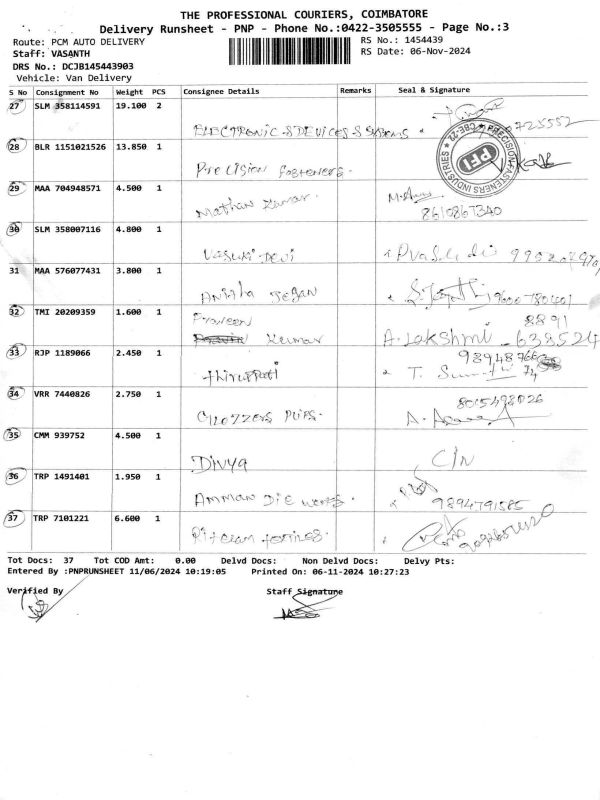 THE PROFESSIONAL COURIERS, COIMBATORE
Delivery Runsheet - PNP - Phone No.:0422-3505555 - Page No.:3
Route: PCM AUTO DELIVERY
RS No.: 1454439
Staff: VASANTH
RS Date: 06-Nov-2024
DRS No.: DCJB145443903
Vehicle: Van Delivery
S No Consignment No Weight PCS Consignee Details Remarks Seal & Signature
27 SLM 358114591 19.100 2
ELECTRONIC & DEVICES
28 BLR 1151021526 13.850 1
PRECISION FASTENERS INDUSTRIES CBE-22
PFI
Precision fosteners.
29 MAA 704948571 4.500 1
Mathan kumar.
8610867340
30 SLM 358007116 4.800 1
VASUKI DEVI
31 MAA 576077431 3.800 1
Anitha Jegan
32 TMI 20209359 1.600 1
Praveen 8891
kumar A. Lakshmi - 638524
33 RJP 1189066 2.450 1
thirupati
34 VRR 7440826 2.750 1
8015498026
35 CMM 939752 4.500 1
Divya C/N
36 TRP 1491401 1.950 1
Amman Die works. 9894791585
37 TRP 7101221 6.600 1
Tot Docs: 37 Tot COD Amt: 0.00 Delvd Docs: Non Delvd Docs: Delvy Pts:
Entered By :PNPRUNSHEET 11/06/2024 10:19:05 Printed On: 06-11-2024 10:27:23
Verified By Staff Signature